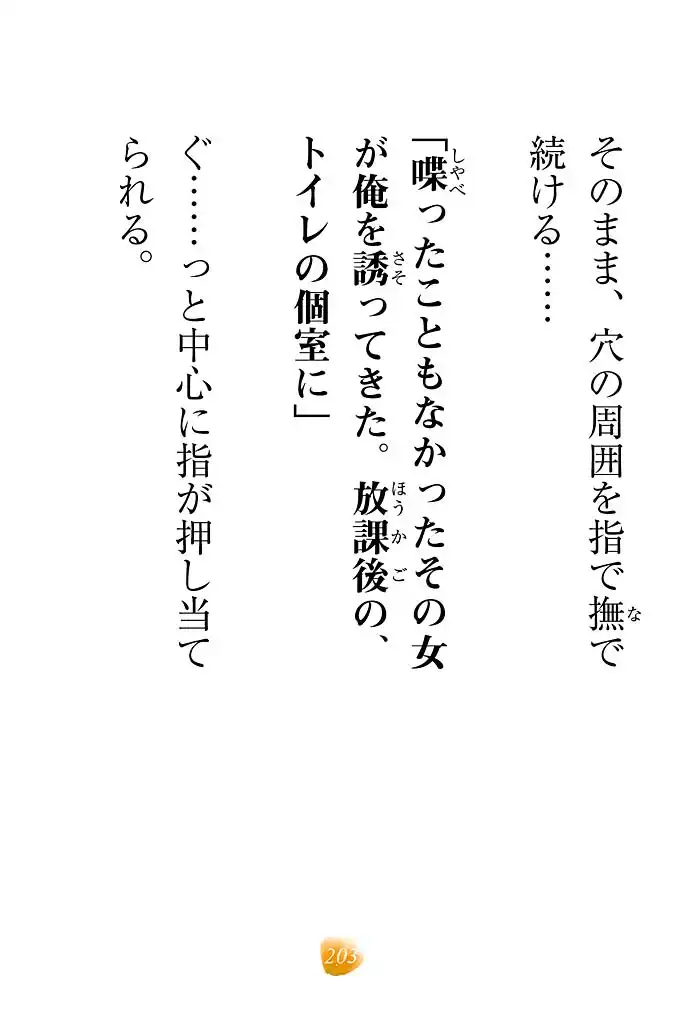 そのまま、穴の周囲を指で撫で
続ける……
「喋ったこともなかったその女
が俺を誘ってきた。放課後の、
トイレの個室に」
ぐ……っと中心に指が押し当て
られる。
203